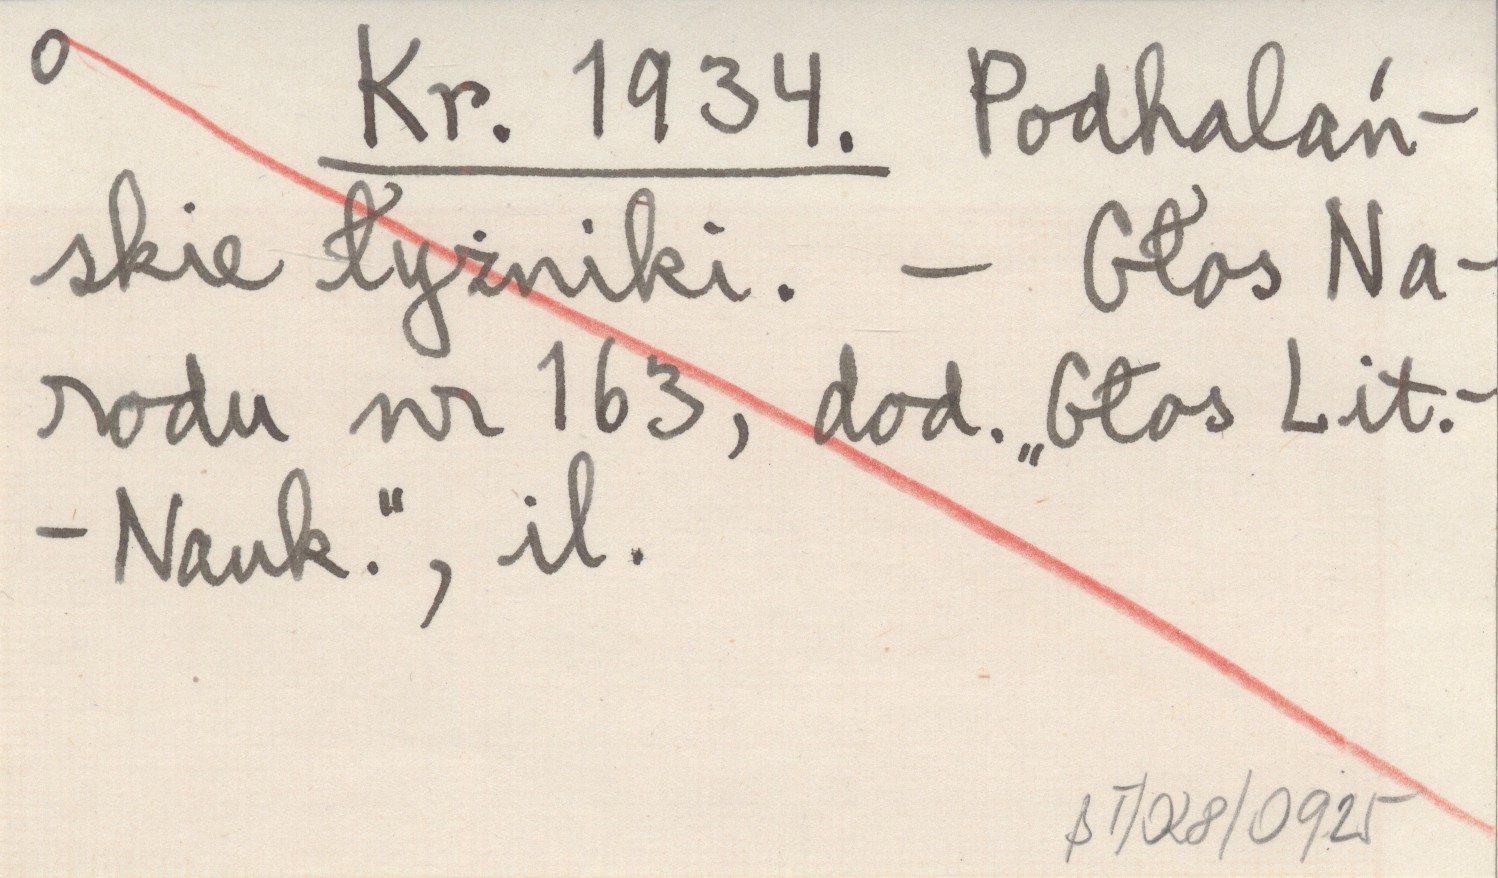 o Kr. 1934. Podhalań-
skie łyżniki. — Głos Na-
rodu nr 163, dod. „Głos Lit.-
-Nauk.", il.
β I/028/0925